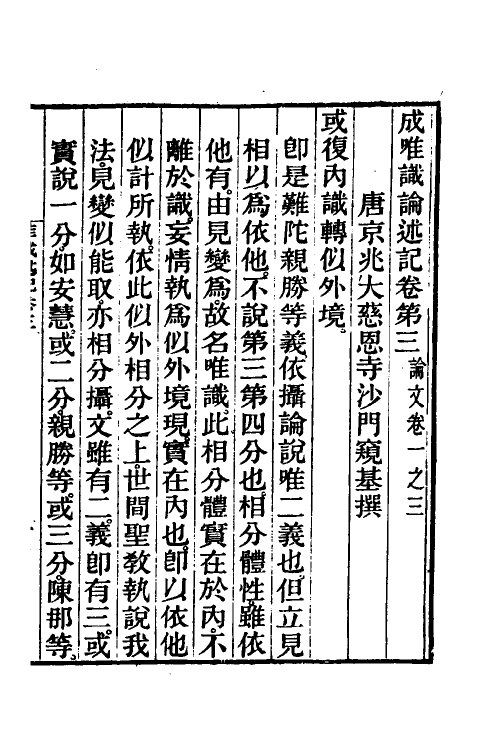 成唯識論述記卷第三 論文卷一之三
唐京兆大慈恩寺沙門窺基撰
或復內識轉似外境。
卽是難陀親勝等義依攝論說唯二義也。但立見
相以爲依他。不說第三第四分也。相分體性。雖依
他有。由見變爲。故名唯識。此相分體實在於內。不
離於識。妄情執爲似外境現。實在內也。卽以依他
似計所執。依此似外相分之上。世間聖教執說我
法。見變似能取。亦相分攝。文雖有二。義卽有三。或
實說一分。如安慧。或二分。親勝等。或三分。陳那等。